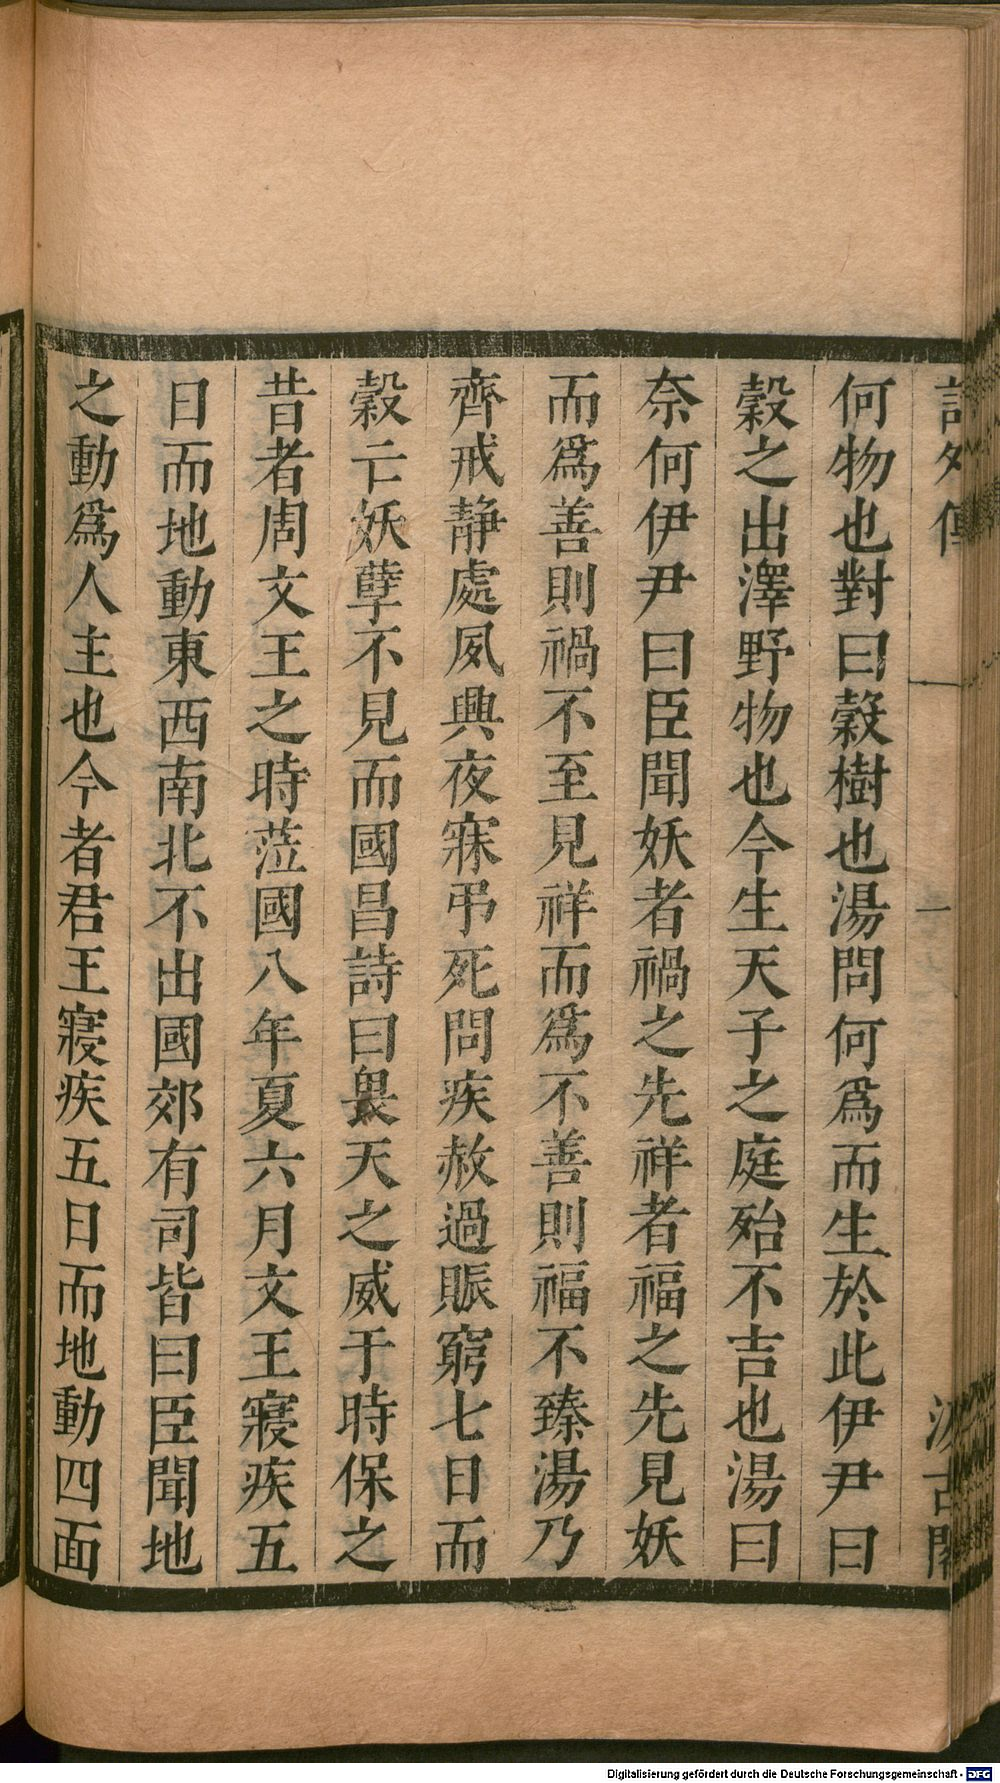 詩外傳 一 汲古閣
何物也對曰穀樹也湯問何爲而生於此伊尹曰
穀之出澤野物也今生天子之庭殆不吉也湯曰
奈何伊尹曰臣聞妖者禍之先祥者福之先見妖
而爲善則禍不至見祥而爲不善則福不臻湯乃
齊戒静處夙興夜寐弔死問疾赦過賑窮七日而
穀亡妖孽不見而國昌詩曰畏天之威于時保之
昔者周文王之時蒞國八年夏六月文王寢疾五
日而地動東西南北不出國郊有司皆曰臣聞地
之動爲人主也今者君王寢疾五日而地動四面
Digitalisierung gefördert durch die Deutsche Forschungsgemeinschaft - DFG